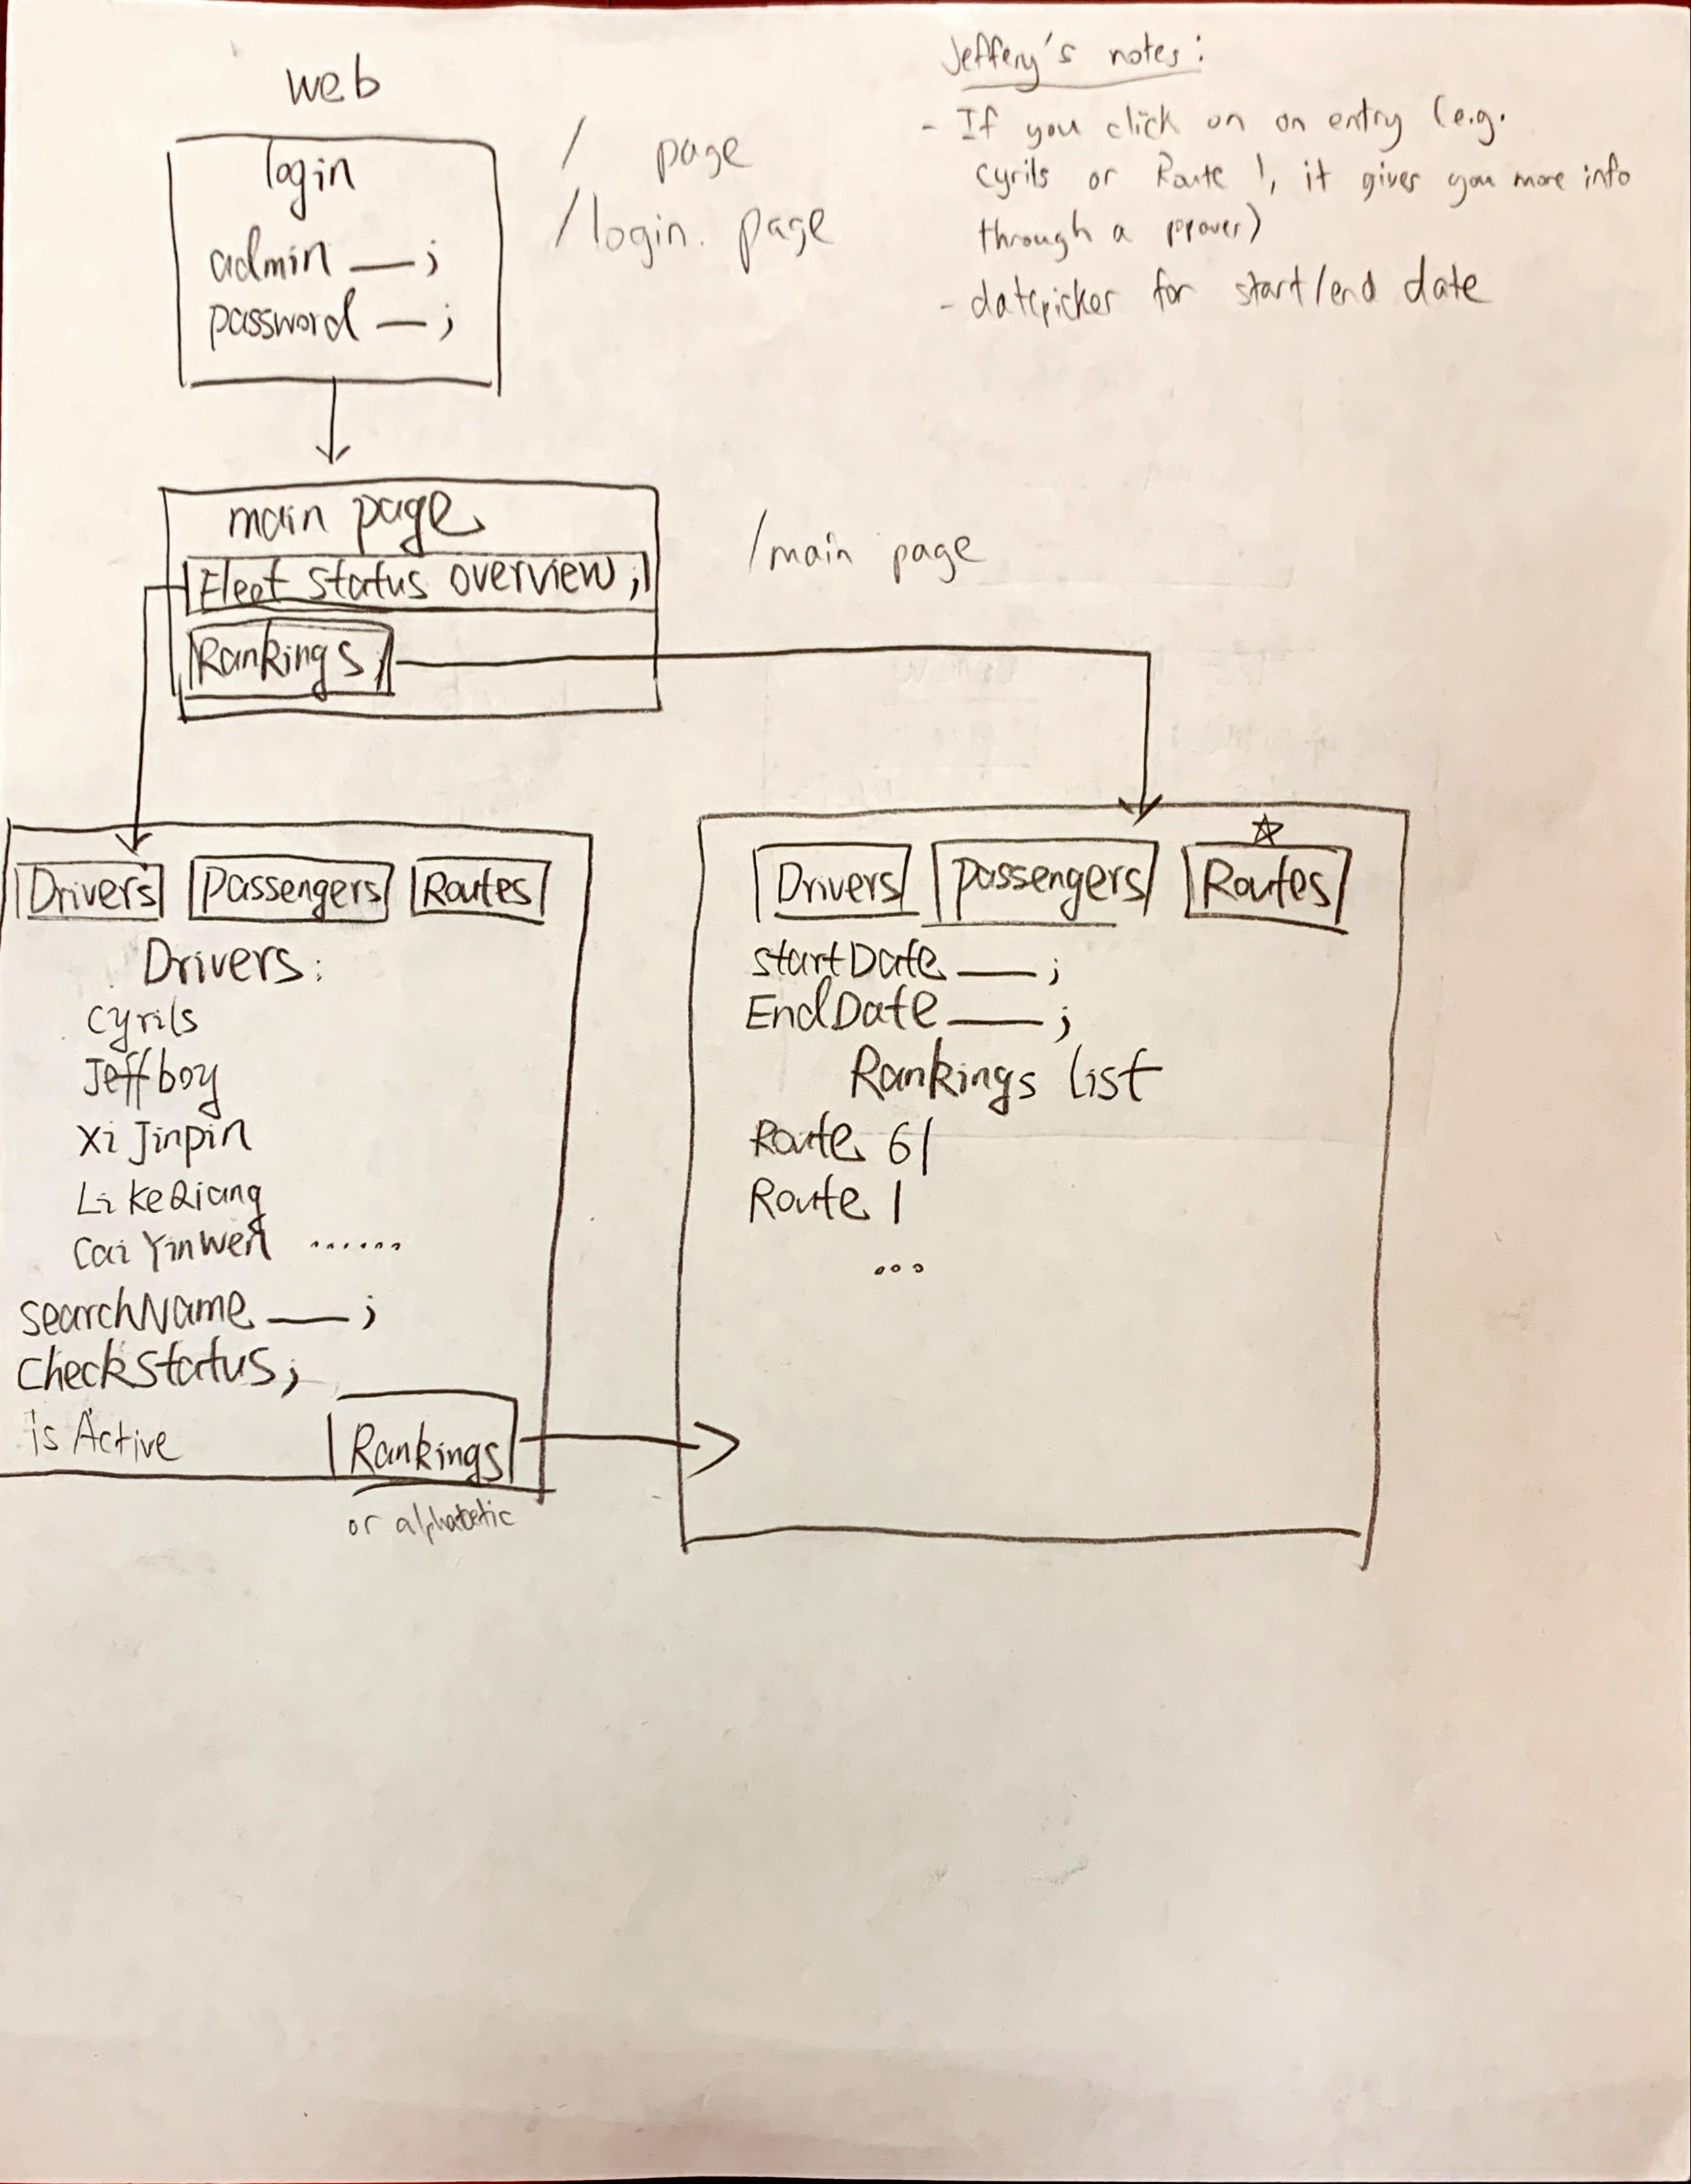 web
login
admin __ ;
password __ ;
/ page
/login. page
Jeffery's notes:
- If you click on on entry (e.g.
cyrils or Route 1, it gives you more info
through a popover)
- datepicker for start/end date
main page
Fleet status overview ;
Rankings ;
/main page
Drivers Passengers Routes
Drivers:
cyrils
Jeffboy
Xi Jinpin
Li KeQiang
Cai YinWen ......
searchName ___ ;
CheckStatus ;
is Active
Rankings
or alphabetic
Drivers passengers Routes
startDate ___ ;
EndDate ___ ;
Rankings list
Route 61
Route 1
...